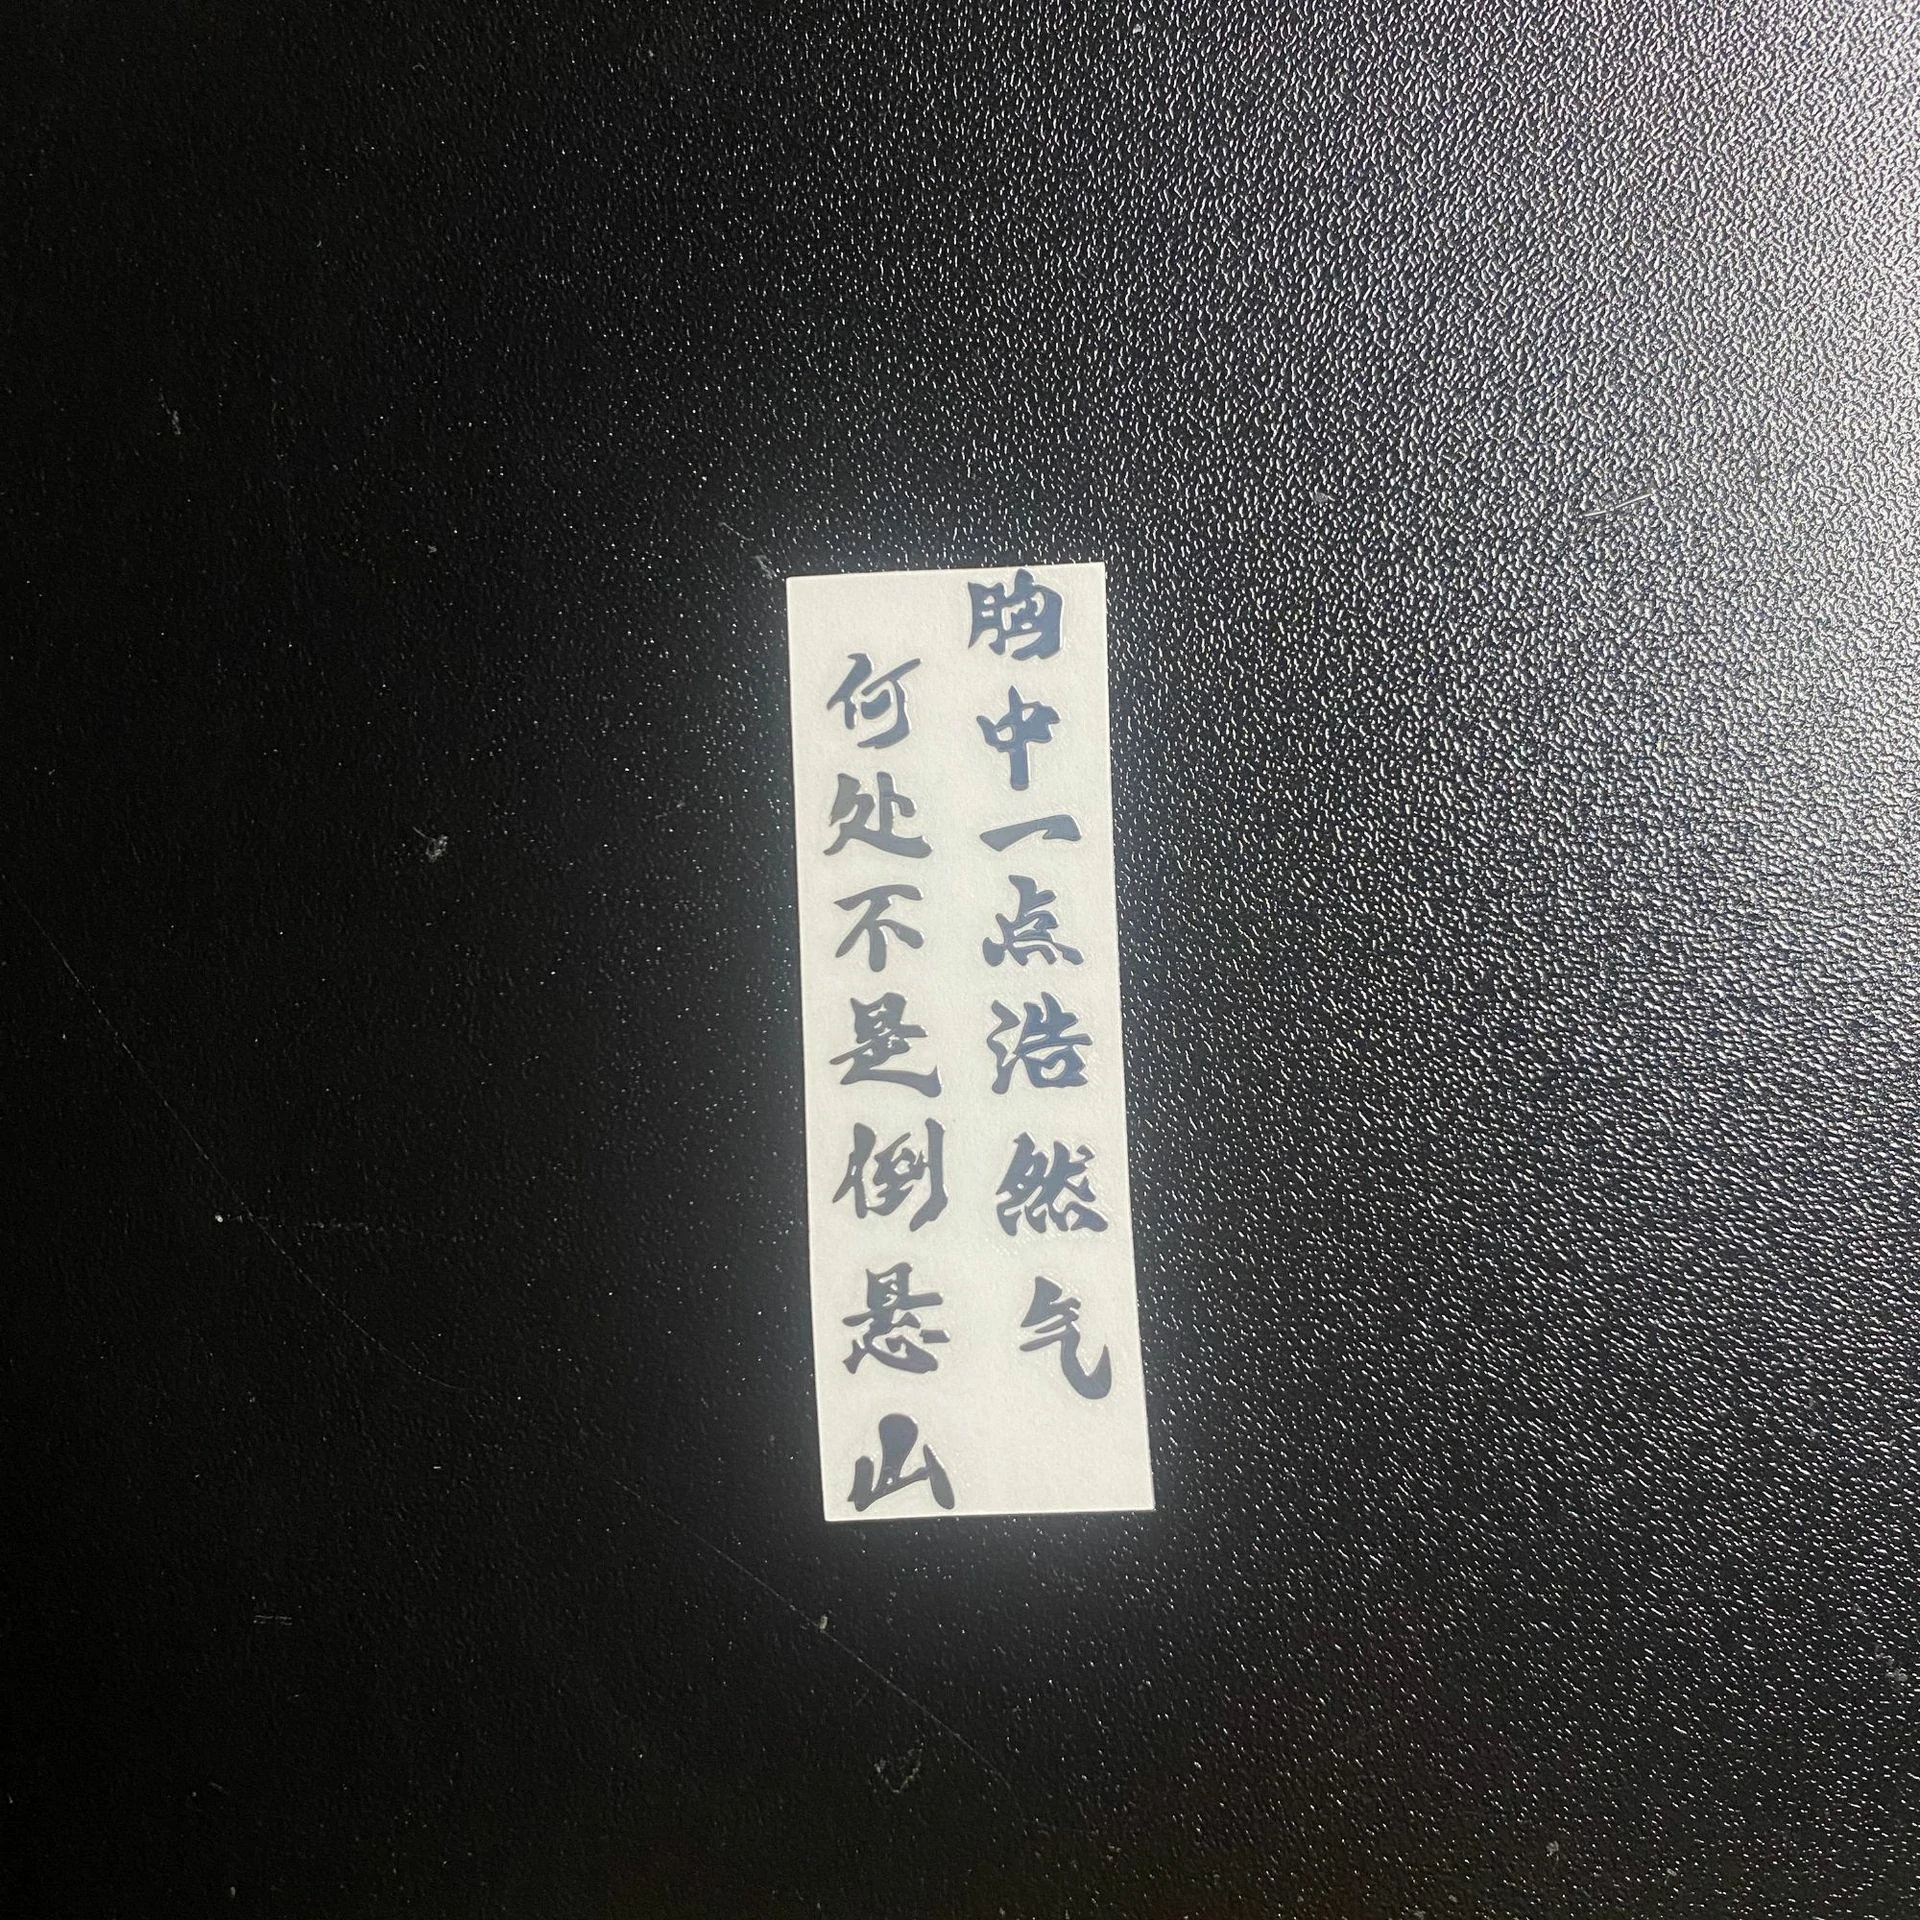 胸中一点浩然气
何处不是倒悬山